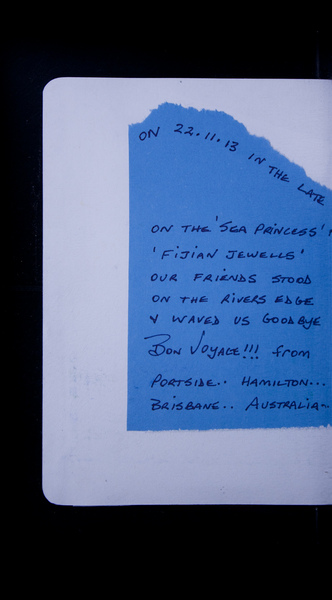 ON 22.11.13 IN THE LATE
ON THE 'SEA PRINCESS'
'FIJIAN JEWELLS'
OUR FRIENDS STOOD
ON THE RIVERS EDGE
& WAVED US GOODBYE
BON VOYAGE!!! from
PORTSIDE.. HAMILTON...
BRISBANE.. AUSTRALIA..